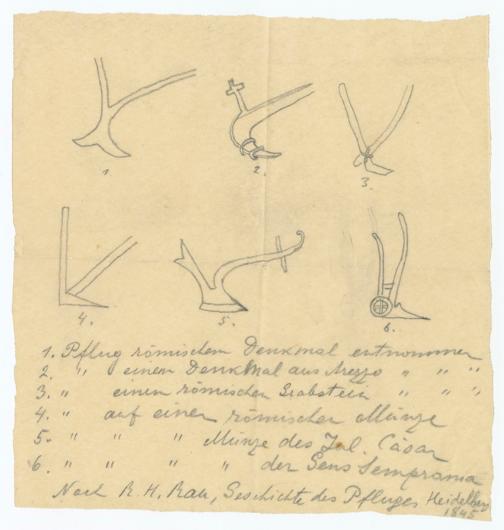 1.
2.
3.
4.
5.
6.
1. Pflug römischem Denkmal entnommen
2. " einem Denkmal aus Arezzo " " "
3. " einem römischen Grabstein " " "
4. " auf einer römischen Münze
5. " " " Münze des Jul. Cäsar
6. " " " " der Gens Semprania
Nach R. H. Rau, Geschichte des Pfluges Heidelberg
1845